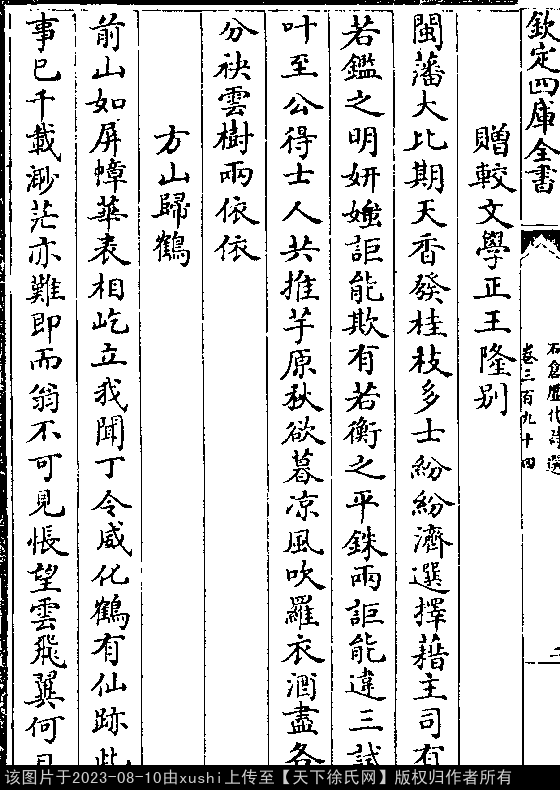 欽定四庫全書
石倉歷代詩選
卷三百九十四
贈較文學正王隆别
閩藩大比期天香發桂枝多士紛紛濟選擇藉主司有
若鑑之明妍媸詎能欺有若衡之平銖兩詎能違三試
叶至公得士人共推芋原秋欲暮凉風吹羅衣酒盡各
分袂雲樹兩依依
方山歸鶴
前山如屏幛華表相屹立我聞丁令威化鶴有仙跡此
事已千載渺茫亦難即而翁不可見悵望雲飛翼何
该图片于2023-08-10由xushi上传至【天下徐氏网】版权归作者所有